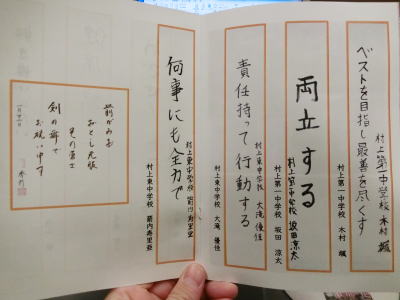 ベストを目指し最善を尽くす
村上第一中学校 木村 颯
村上第一中学校 木村 颯
両立する
村上第一中学校 坂田涼太
村上第一中学校 坂田 涼太
責任持って行動する
村上東中学校 大滝優佳
村上東中学校 大滝 優佳
何事にも全力で
村上東中学校 箭内寿里亜
村上東中学校 箭内寿里亜
前がみお
おとし元服
剣の舞で
お祝い申す